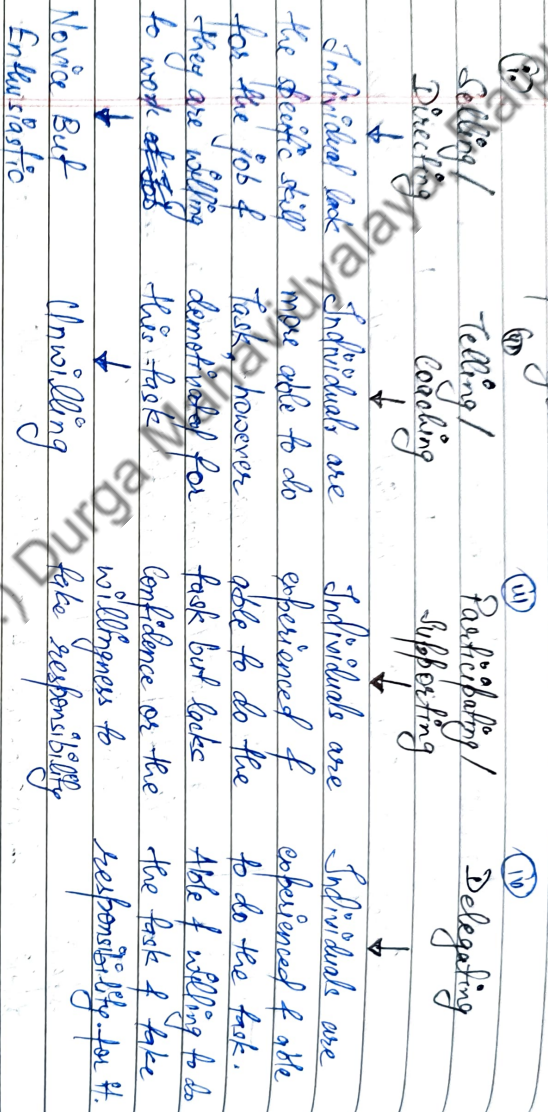 (i)
Selling /
Directing
Individual lack
the specific skill
for the job &
they are willing
to work
Novice But
Enthusiastic
(ii)
Telling /
Coaching
Individuals are
more able to do
task, however
demotivated for
this task
Unwilling
(iii)
Participating /
Supporting
Individuals are
experienced &
able to do the
task but lacks
Confidence or the
willingness to
take responsibility
(iv)
Delegating
Individuals are
experienced & able
to do the task.
Able & willing to do
the task & take
responsibility for it.
.) Durga Mahavidyalaya, Raipu